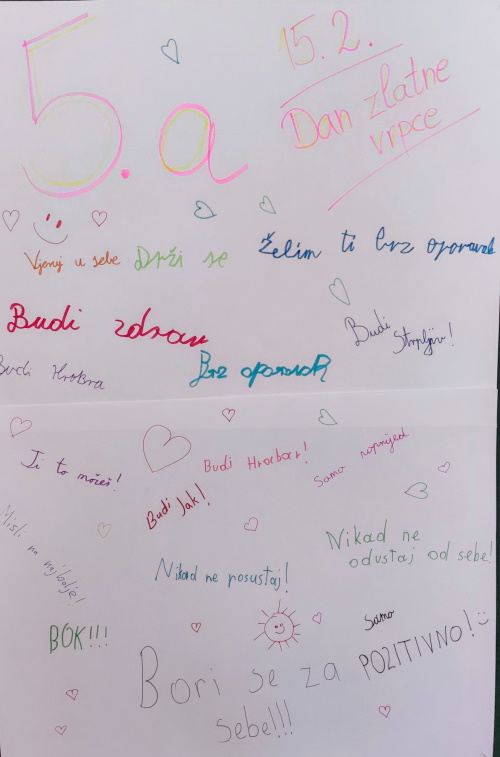 5.a
15.2.
Dan zlatne
vrpce
Vjeruj u sebe
Drži se
Želim ti brz oporavak
Budi zdrav
Budi
Strpljiv!
Budi Hrabra
Brz oporavak
Ti to možeš!
Budi Hrabar!
Samo naprijed
Budi Jak!
Misli na najbolje!
Nikad ne posustaj!
Nikad ne
odustaj od sebe!
BOK!!!
Samo
POZITIVNO!
Bori se za
sebe!!!